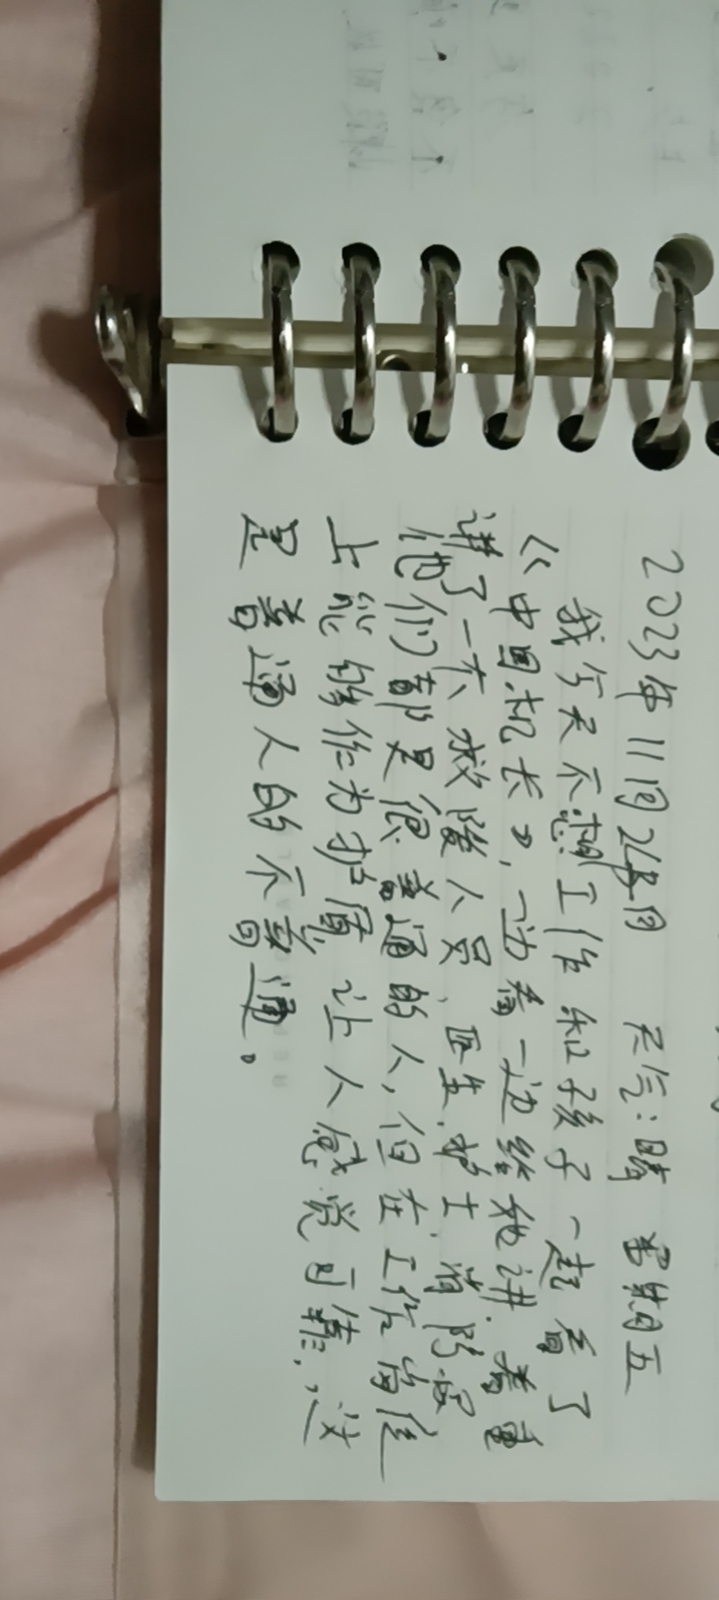 2023年11月24日 天气:晴 星期五
我今天不想工作和孩子一起看了
《中国机长》,一边看一边给她讲.着重
讲了一下救援人员、医生.护士.消防员
他们都是很普通的人,但在工作岗位
上能够作为护盾让人感觉可靠,这
是普通人的不普通。